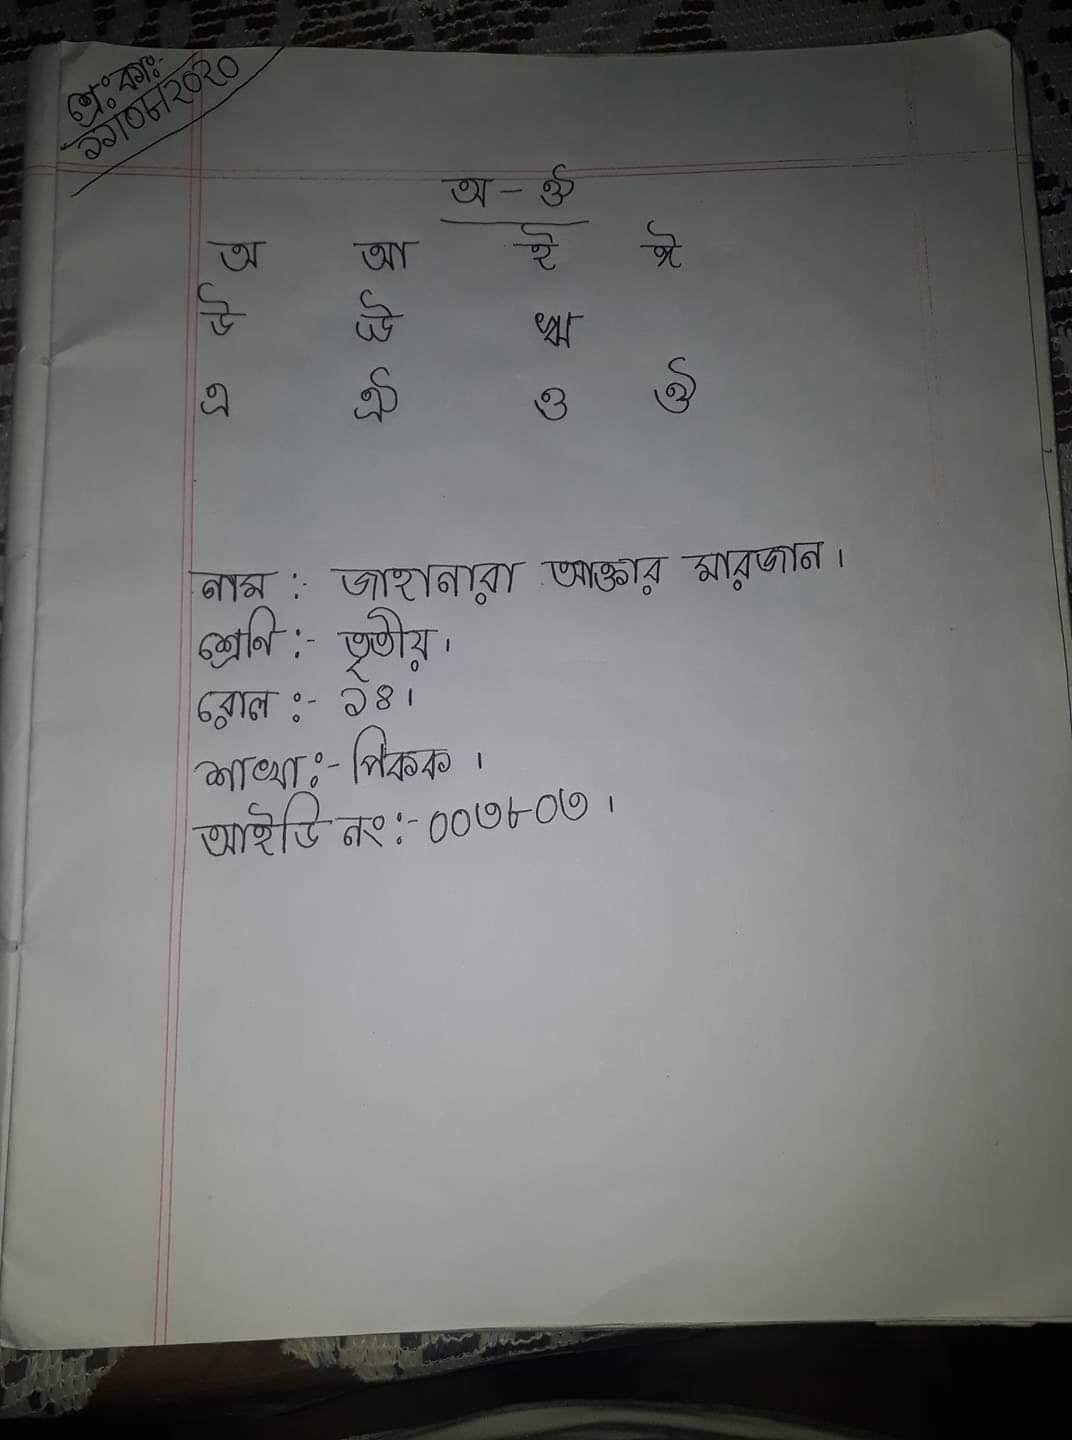 শ্রে: কা:-
১১|০৮|২০২০
অ - ঔ
অ আ ই ঈ
উ ঊ ঋ
এ ঐ ও ঔ
নাম :- জাহানারা আক্তার মারজান।
শ্রেণি :- তৃতীয়।
রোল :- ১৪।
শাখা:- পিকক ।
আইডি নং:- ০০৩৮০৩ ।